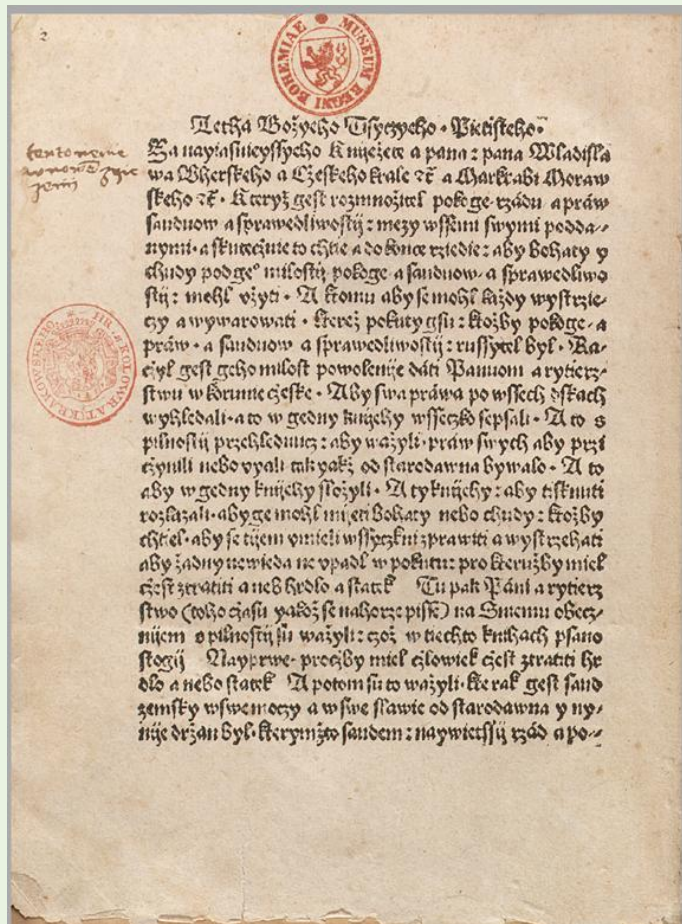 2
MUSEUM REGNI BOHEMIAE
Letha Božyeho Tisyczyeho • Pietisteho •
Za nayiasnieyssyeho Kniježete a pana : pana Wladisla
wa Vherskeho a Cžeskeho krale ꝛc̃ a Markrabi Moraw
skeho ꝛc̃ • Kteryž gest rozmnožitel pokoge rzádu a práw
sauduow a sprawedliwostij : mezy wssemi swymi podda-
nymi • a skutecžnie to chtie a do konce rziedie : aby bohaty y
chudy pod geº milostij pokoge a sauduow • a sprawedliwo
stij : mohl vžyti • A ktomu aby se mohl každy wystrzie-
czy a wywarowati • kterež pokuty gsu : ktožby pokoge • a
práw • a sauduow a sprawedliwostij : russytel byl • Ra-
cžyl gest geho milost powolenije dáti Pannom a rytierz-
stwu w korunie cžeske • Aby swa práwa po wssech dskach
wyhledali • a to w gedny knijehy wssecžko sepsali • A to s
pilnostij przehlednucz : aby wažyli • práw swych aby przi
cžynili nebo vyali tak yakž od starodawna bywalo • A to
aby w gedny knijehy složyli • A ty knijehy : aby tisknuti
rozkazali • aby ge mohl mijeti bohaty nebo chudy : ktožby
chtiel • aby se tijem vmieli wssyczkni zprawiti a wystrzehati
aby žadny newieda ne vpadl w pokutu : pro kteružby miel
cžest ztratiti a neb hrdlo a statek Tu pak Páni a rytierz
stwo (toho cžasu yakož se nahorze pisse) na Sniemu obecz-
nijem s pilnostij su wažyli : czož w tiechto knihach psano
stogij Nayprwe • procžby miel cžlowiek cžest ztratiti hr
dlo a nebo statek A potom su to wažyli • kterak gest saud
zemsky w swe moczy a w swe slawie od starodawna y ny-
nije držan byl • kterymžto saudem : naywietssij rzád a po-